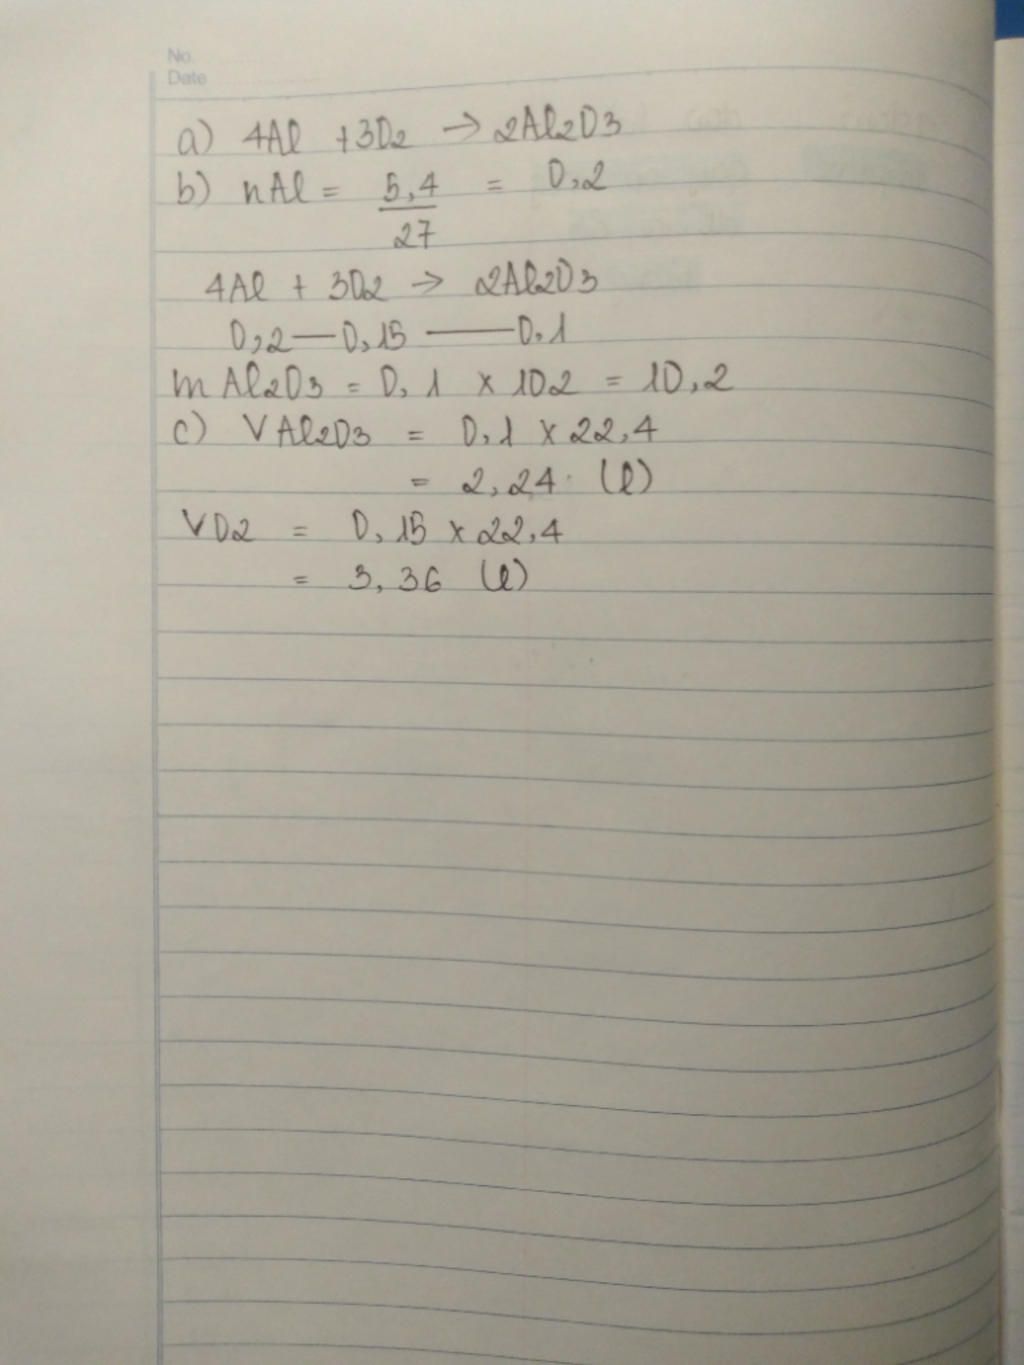 No.
Date
a) 4Al + 3O2 → 2Al2O3
b) nAl = 5,4/27 = 0,2
4Al + 3O2 → 2Al2O3
0,2 — 0,15 — 0,1
m Al2O3 = 0,1 × 102 = 10,2
c) VAl2O3 = 0,1 × 22,4
= 2,24 (l)
VO2 = 0,15 × 22,4
= 3,36 (l)